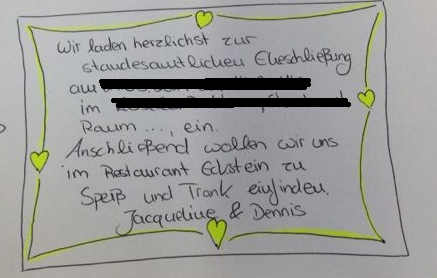 Wir laden herzlichst zur
standesamtlichen Eheschließung
am
im
Raum ..., ein.
Anschließend wollen wir uns
im Restaurant Eckstein zu
Speiß und Trank einfinden.
Jacqueline & Dennis